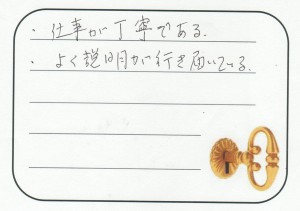 ・仕事が丁寧である.
・よく説明が行き届いている.